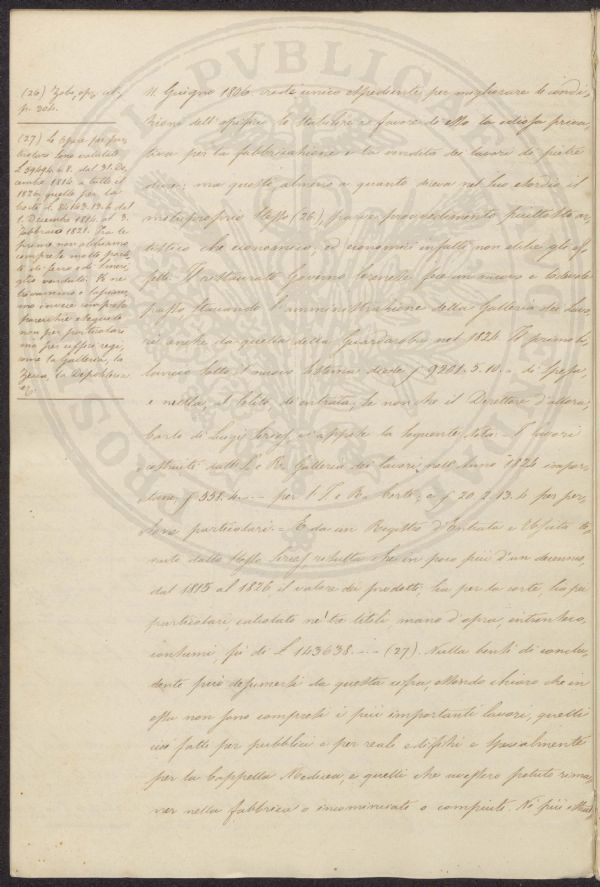 (26) Zobi, op. cit.,
p. 304.
(27) Le spese per par
ticolari sono valutate
L 59494. 6. 8. dal 31. Di
cembre 1814 a tutto il
1826 quelle per la
Corte L 84143. 13. 4 dal
1. Decembre 1814. al 3.
Febbraio 1821. Fra le
prime non abbiamo
comprese molte parti
te di ferro e di smeri
glio vendute. Vi ne
trovammo e lasciam
mo invece comprese
parecchie eseguite
non per particolari
ma per uffici regi,
come la Galleria, la
Zecca, la Depositeria
ec.
11 Giugno 1806 crede unico espediente, per migliorare le condi
zioni dell'opificio lo stabilire a favore di esso la odiosa priva
tiva per la fabbricazione e la vendita dei lavori di pietre
dure: ma questo, almeno a quanto diceva nel suo esordio il
motuproprio stesso (26), pareva provvedimento piuttosto ar
tistico che economico; ed economici infatti non ebbe gli ef
fetti. Il restaurato Governo Lorenese fece un nuovo e
passo staccando l'amministrazione della Galleria dei lavo
ri anche da quella della Guardaroba nel 1824. Il primo bi
lancio sotto il nuovo sistema diede ƒ 9201. 5. 10. di spesa,
e nulla, al solito, di entrata, se non che il Direttore d'allora,
Carlo di Luigi Siries, vi appose la seguente nota: I lavori
eseguiti dall'I. e R. Galleria dei lavori nell'anno 1824 impor
tano ƒ 558. 4. -- per l'I. e R. Corte, e ƒ 20. 2. 13. 4 per per
sone particolari. = E da un Registro d'Entrata e Uscita te
nuto dallo stesso Siries, risulta che in poco più d'un decennio,
dal 1815 al 1826 il valore dei prodotti, sia per la corte, sia pei
particolari, calcolato ne' tre titoli, mano d'opra, intrinseco,
consumi, fu di L 143638. -- (27). Nulla bensì di conclu
dente può desumersi da questa cifra, essendo chiaro che in
essa non sono compresi i più importanti lavori, quelli
cioè fatti per pubblici e per reali edifizi e specialmente
per la Cappella Medicea, e quelli che avessero potuto rima
ner nella fabbrica o incominciati o compiuti. Nè più